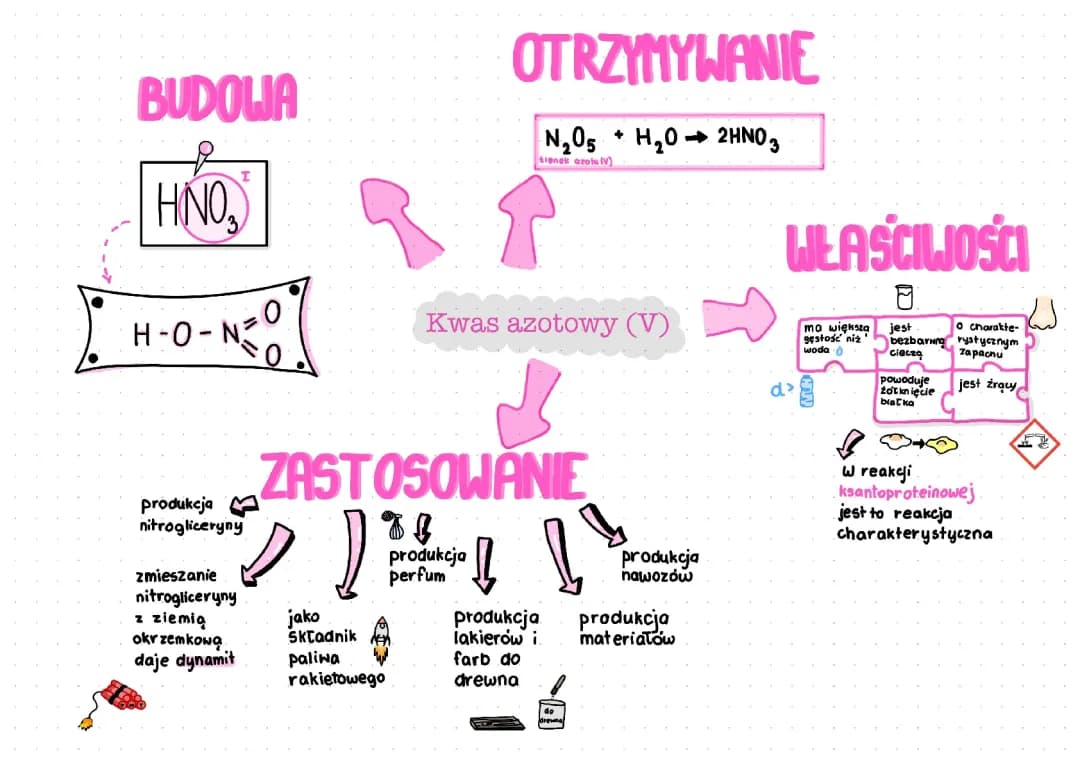 OTRZYMYWANIE
BUDOWA
N₂O₅ + H₂O → 2HNO₃
tlenek azotu(V)
HNO₃ I
H-O-N=O
=O
Kwas azotowy (V)
WŁAŚCIWOŚCI
ma większą
gęstość niż
woda
jest
bezbarwną
cieczą
o charakte-
rystycznym
zapachu
d>
powoduje
żółknięcie
białka
jest żrący
W reakcji
ksantoproteinowej
jest to reakcja
charakterystyczna
ZASTOSOWANIE
produkcja
nitrogliceryny
zmieszanie
nitrogliceryny
z ziemią
okrzemkową
daje dynamit
jako
składnik
paliwa
rakietowego
produkcja
perfum
produkcja
lakierów i
farb do
drewna
do
drewna
produkcja
materiałów
produkcja
nawozów